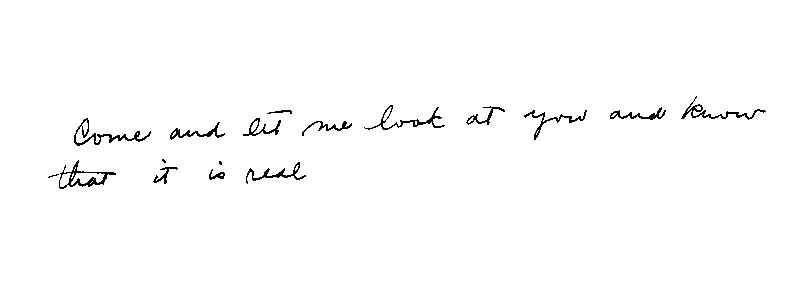 Come and let me look at you and know
that it is real